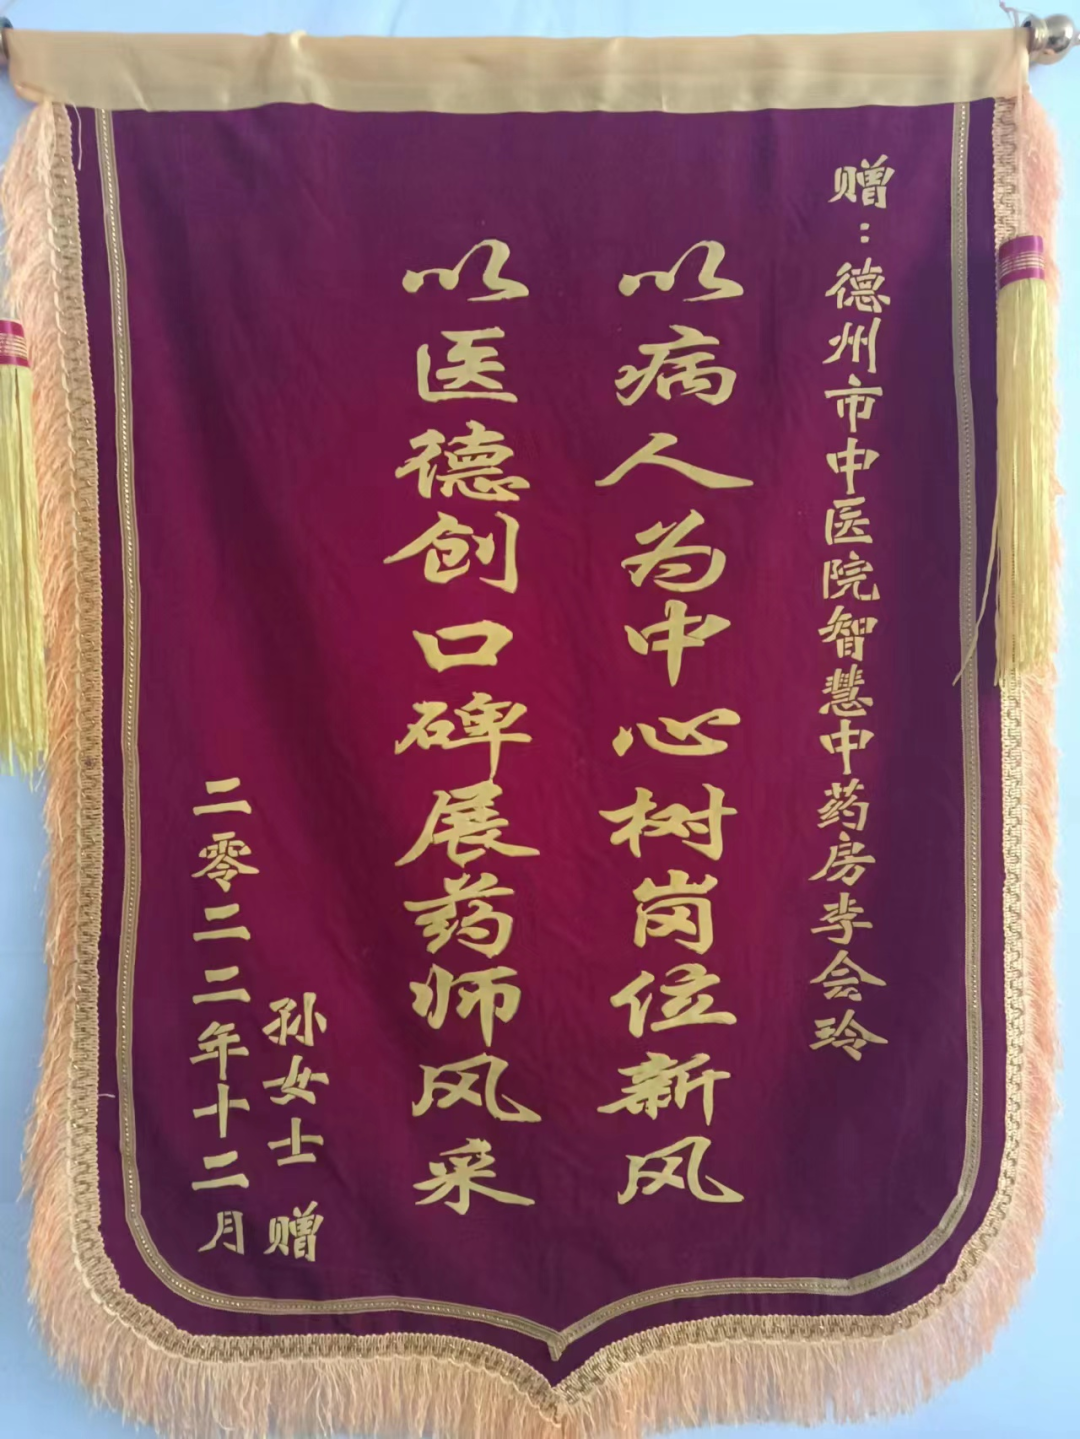 赠：德州市中医院智慧中药房李会玲
以病人为中心树岗位新风
以医德创口碑展药师风采
孙女士 赠
二零二二年十二月